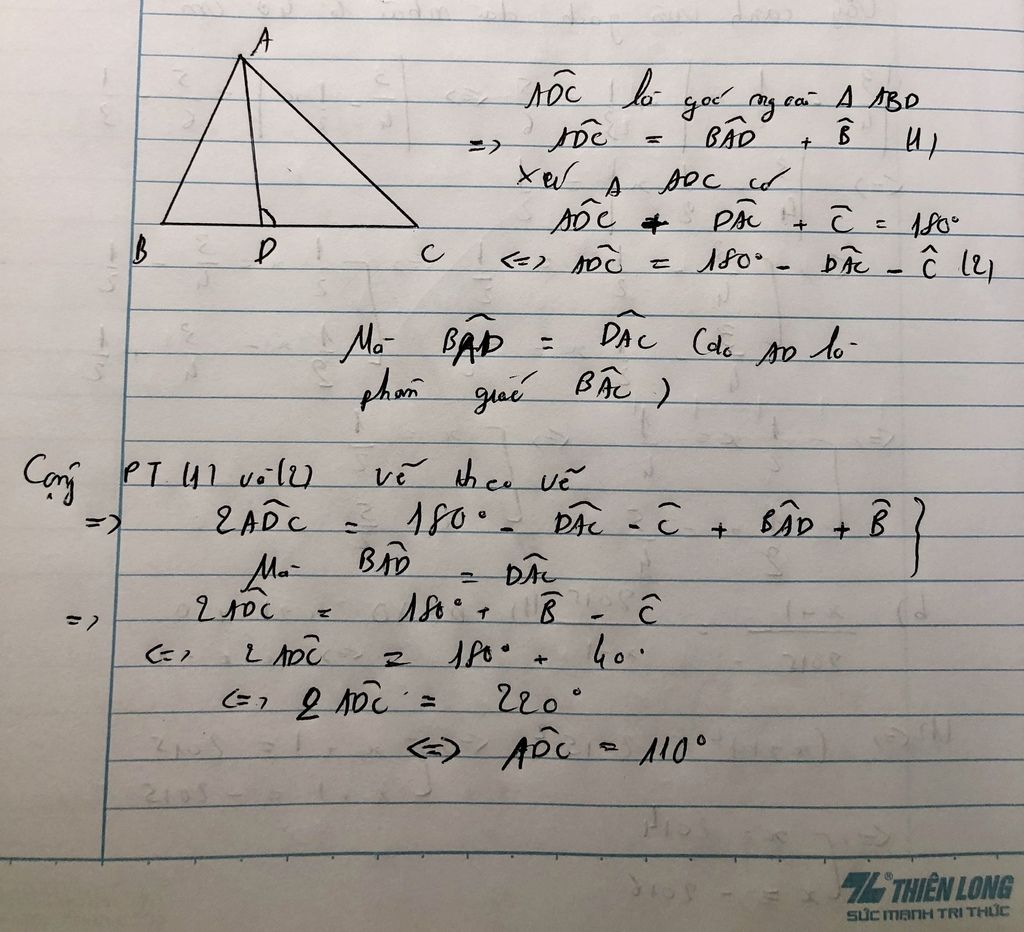 A
B D C
ADC là góc ngoài Δ ABD
=> ADC = BAD + B (1)
Xét Δ ADC có
ADC + DAC + C = 180°
<=> ADC = 180° - DAC - C (2)
Mà BAD = DAC (do AD là
phân giác BAC)
Cộng PT (1) và (2) vế theo vế
=> 2ADC = 180° - DAC - C + BAD + B }
Mà BAD = DAC
=> 2ADC = 180° + B - C
<=> 2 ADC = 180° + 40°
<=> 2 ADC = 220°
<=> ADC = 110°
® THIÊN LONG
SỨC MẠNH TRI THỨC